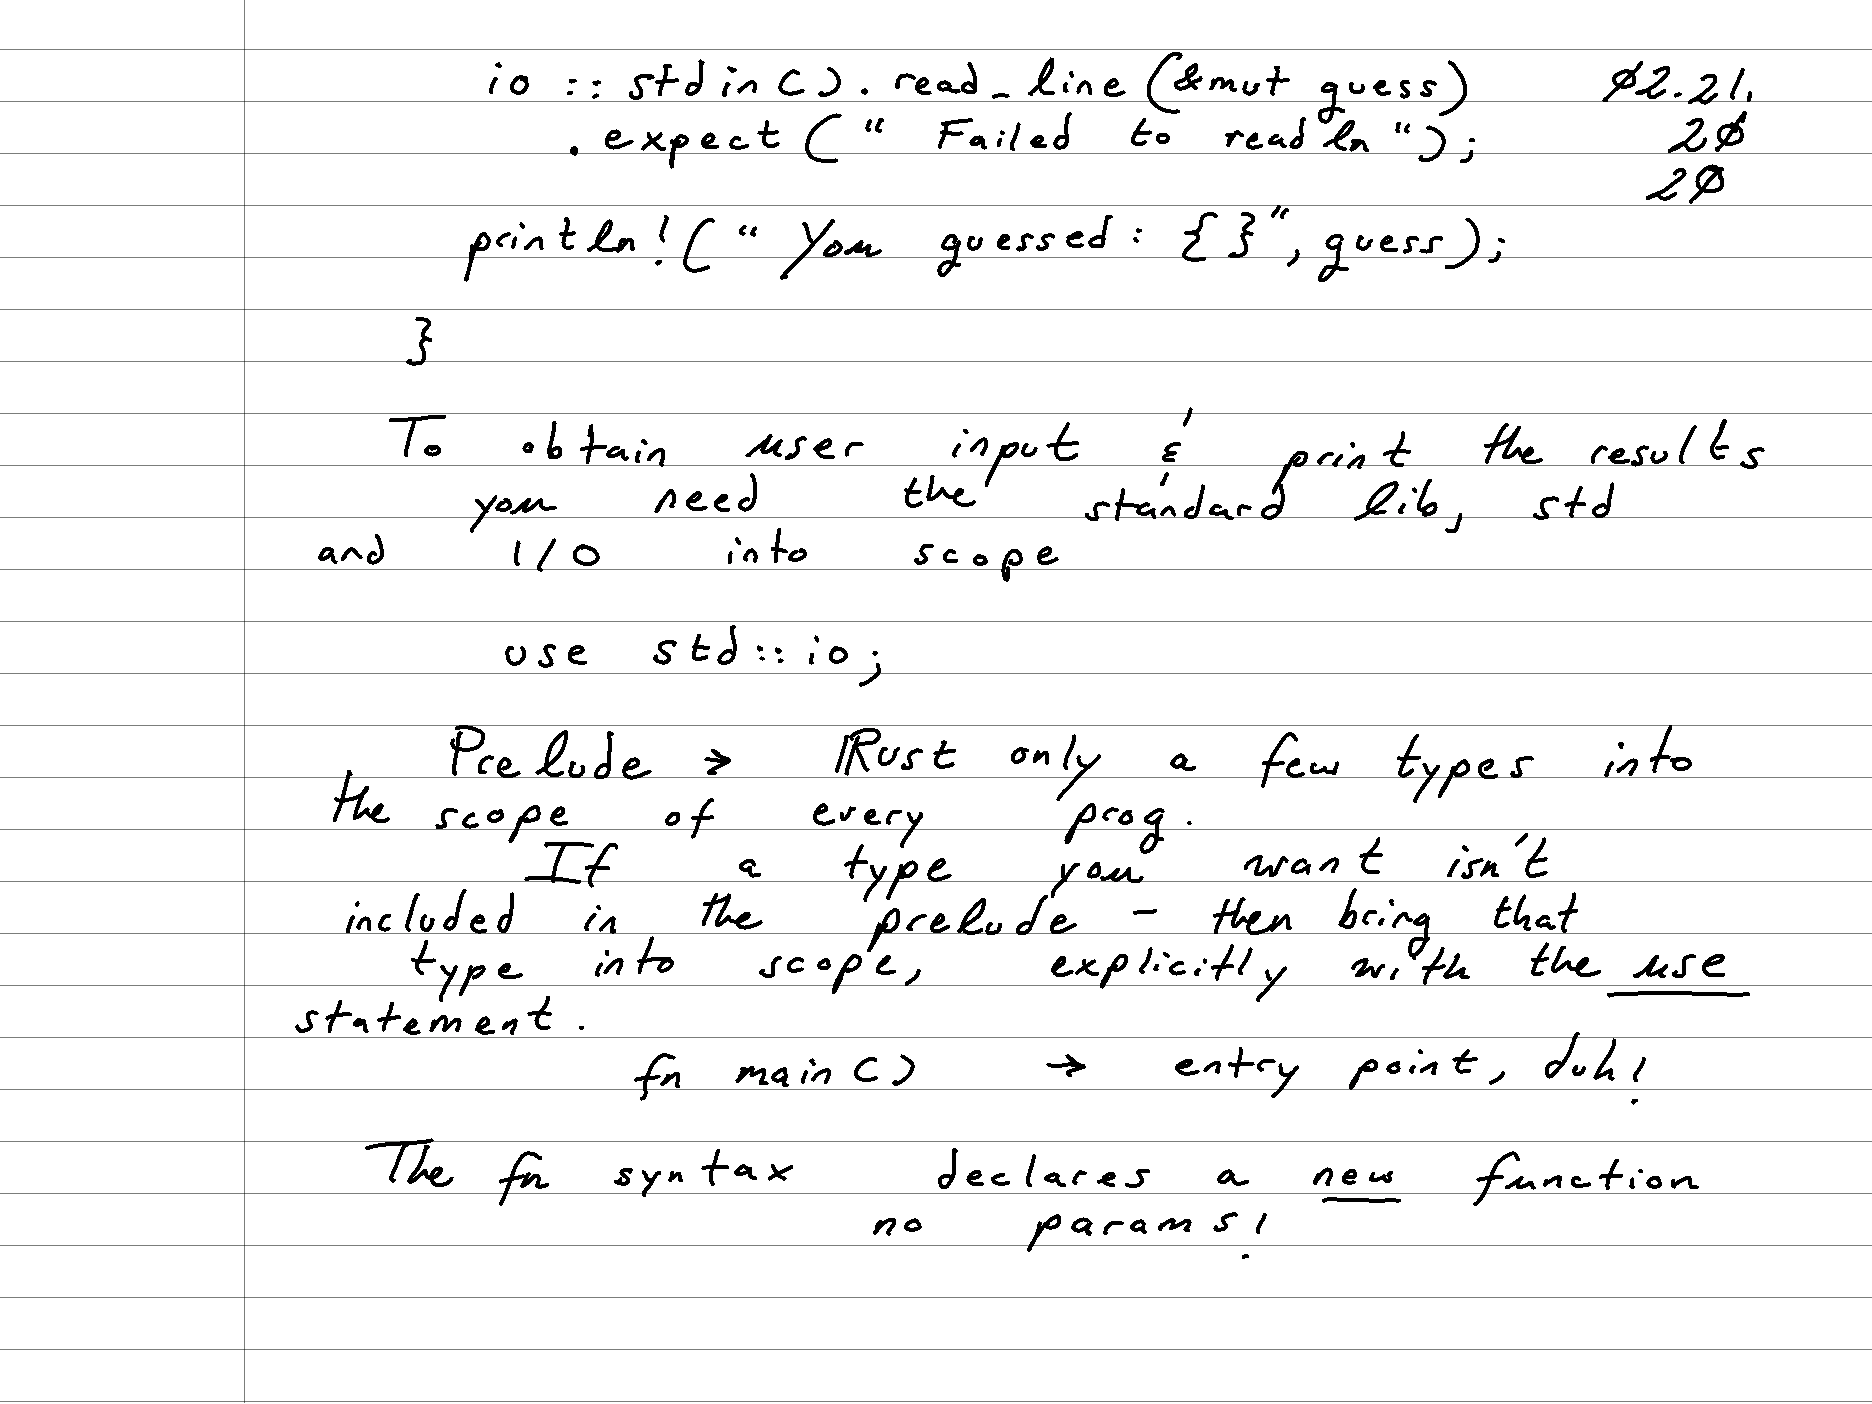 io :: stdin(). read_line (&mut guess) 02.21.
. expect (" Failed to readln "); 20
20
println! (" You guessed: { }", guess);
}
To obtain user input & print the results
you need the standard lib, std
and I/O into scope
use std::io;
Prelude → Rust only a few types into
the scope of every prog.
If a type you want isn't
included in the prelude - then bring that
type into scope, explicitly with the use
statement.
fn main() → entry point, duh!
The fn syntax declares a new function
no params!